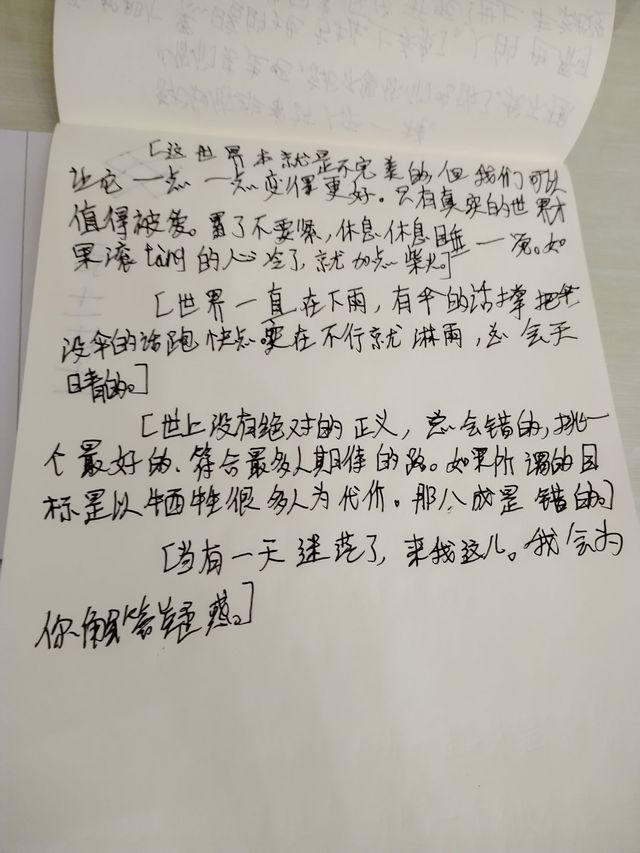 [这世界本就是不完美的,但我们可以
让它一点一点变得更好。只有真实的世界才
值得被爱。累了不要紧,休息休息睡一觉。如
果滚tàng的心冷了,就加点柴火。]
[世界一直在下雨,有伞的话撑把伞
没伞的话跑快点。实在不行就淋雨,总会天
晴的。]
[世上没有绝对的正义,总会错的,挑一
个最好的、符合最多人期待的路。如果所谓的目
标是以牺牲很多人为代价。那八成是错的。]
[当有一天迷茫了,来我这儿。我会为
你解答疑惑。]